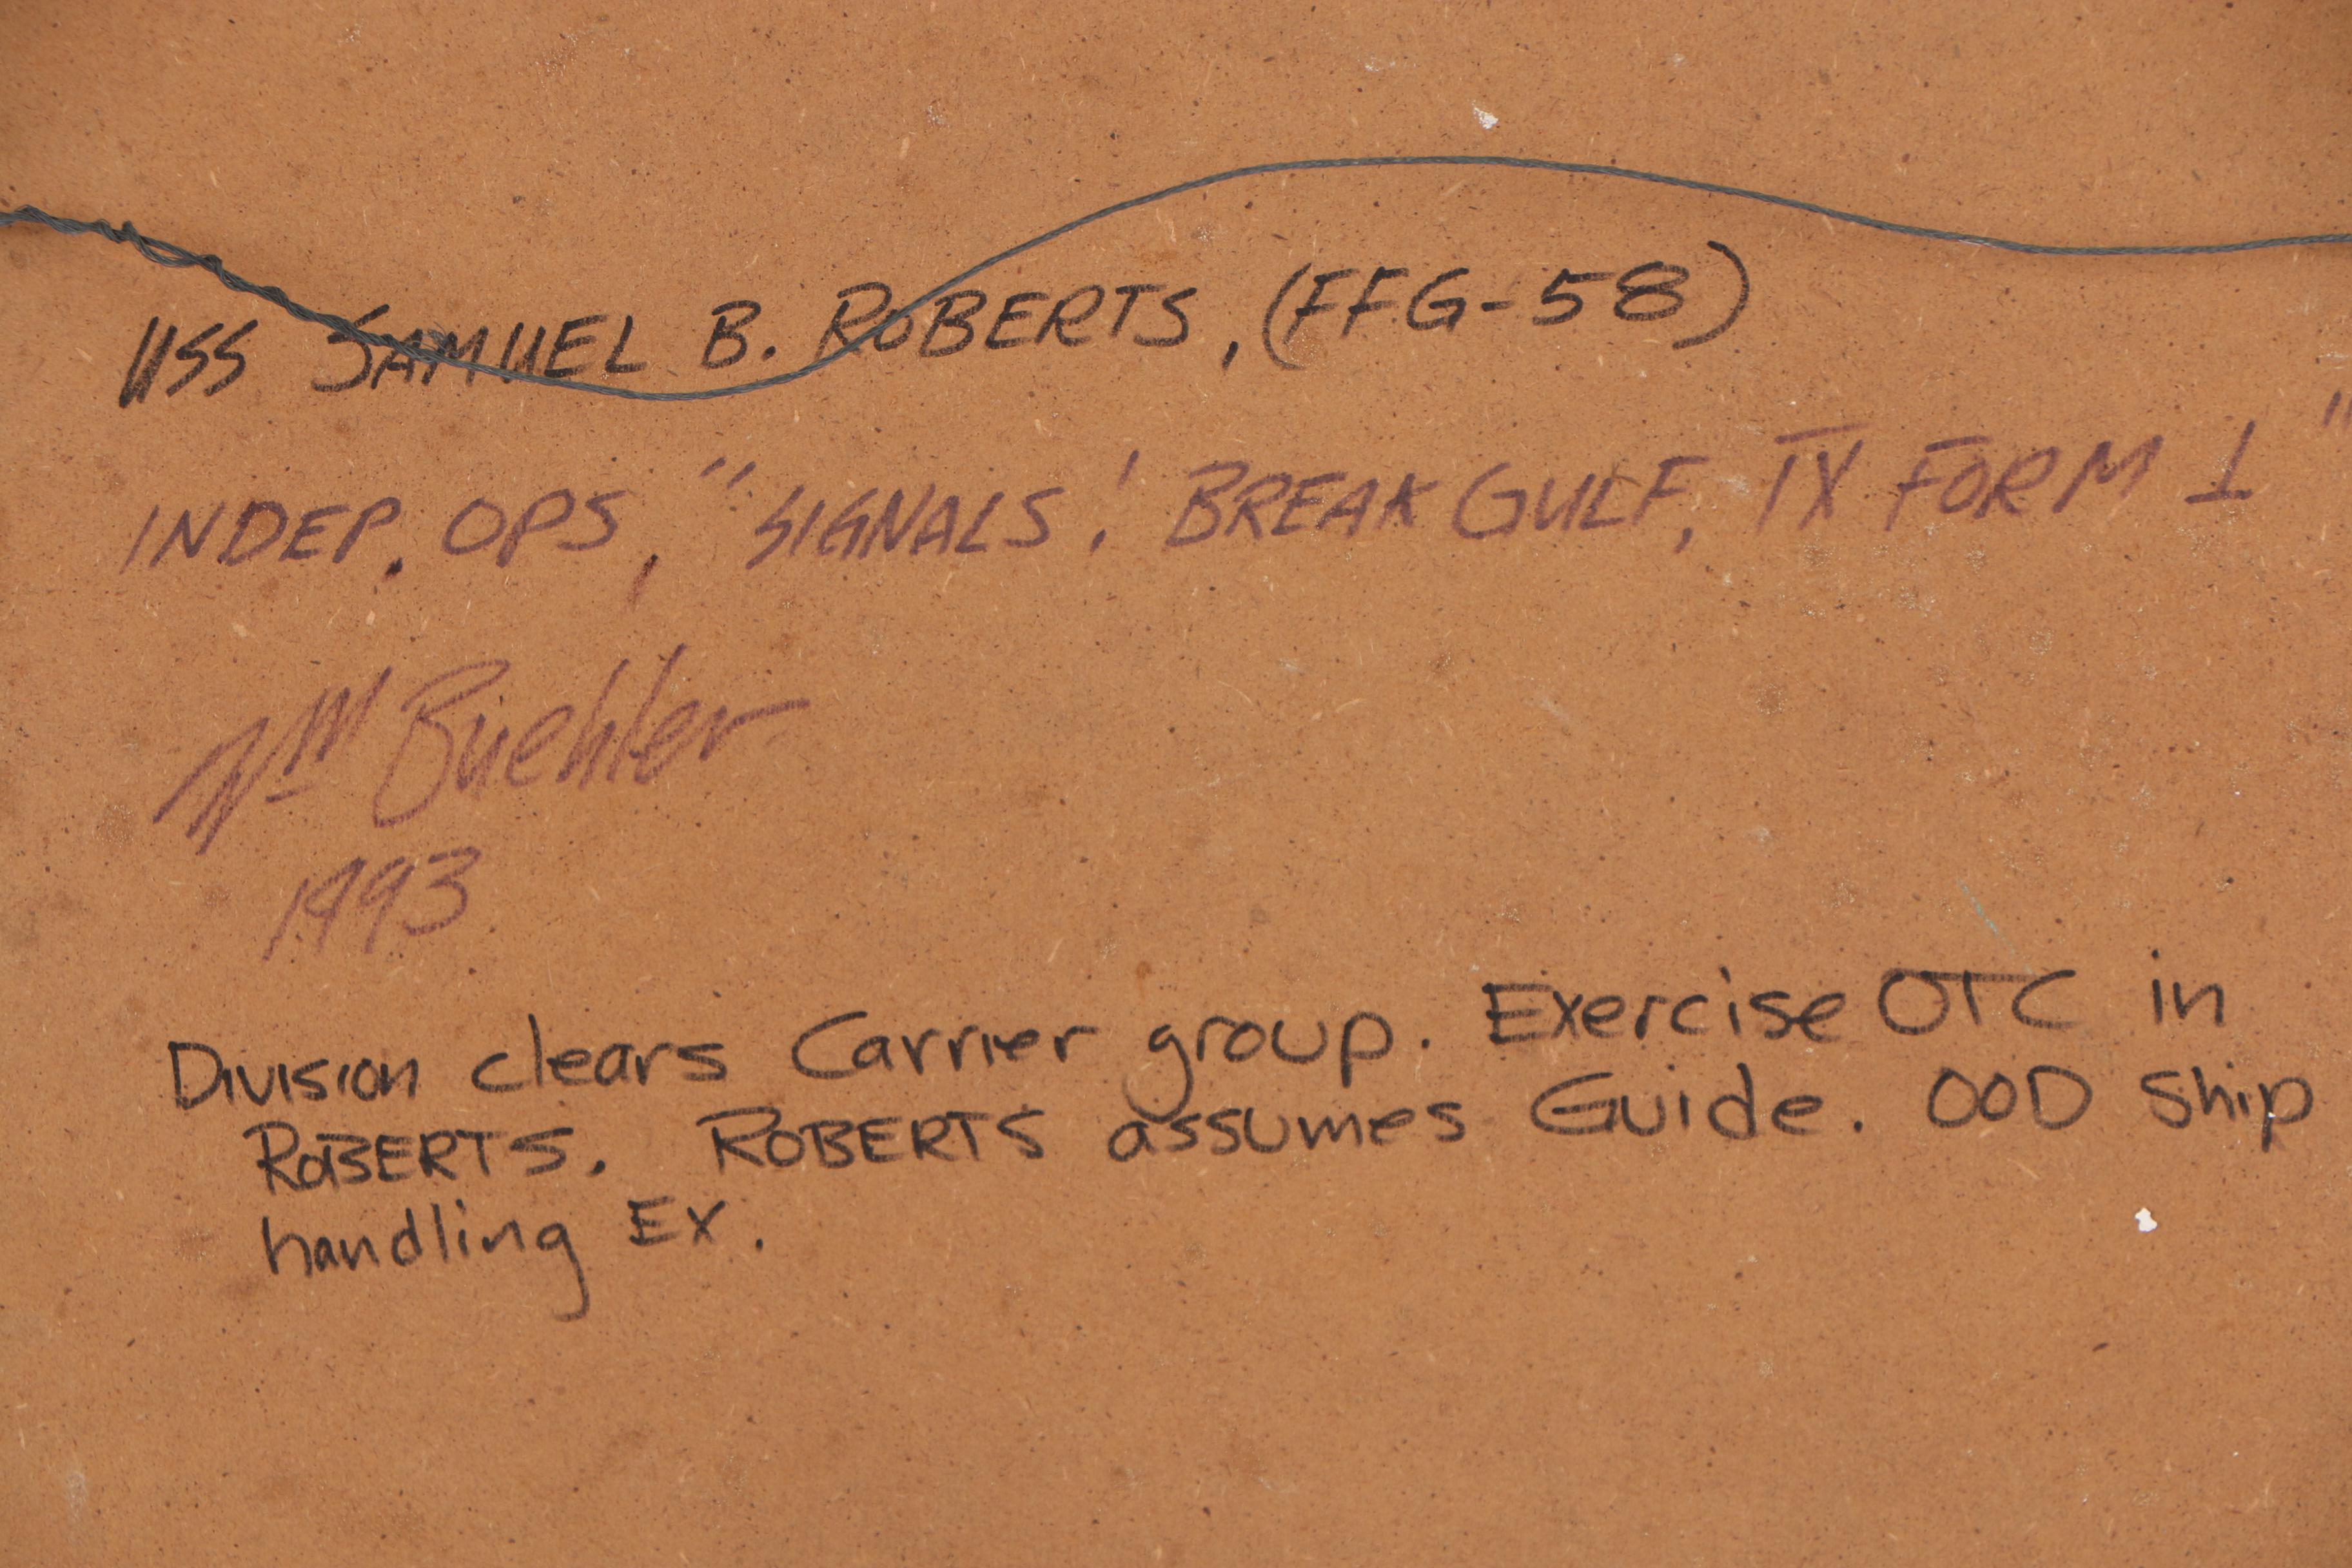 USS SAMUEL B. ROBERTS, (FFG-58)
INDEP. OPS, "SIGNALS! BREAK GULF, TX FORM 1"
Wm Buehler
1993
Division clears Carrier group. Exercise OTC in
ROBERTS. ROBERTS assumes Guide. OOD Ship
handling Ex.